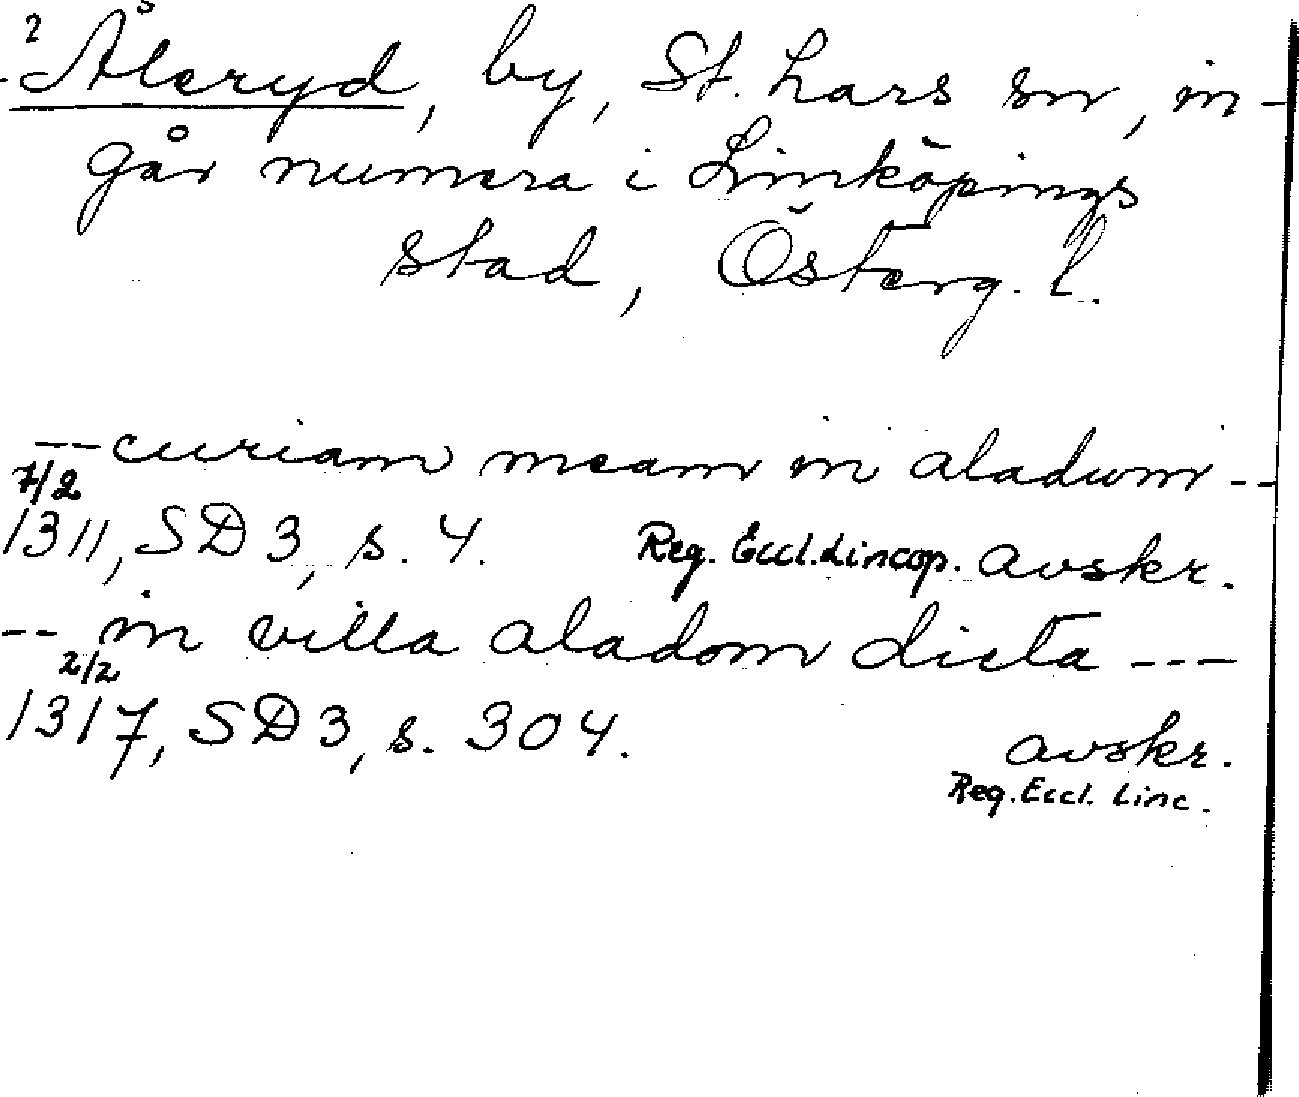 2 Åleryd, by, St. Lars sn, in-
går numera i Linköpings
stad, Österg. l.
-- curiam meam in aladum --
7/2
1311, SD 3, s. 4. Reg. Eccl. Lincop. avskr.
-- in villa aladom dicta ---
2/2
1317, SD 3, s. 304. avskr.
Reg. Eccl. Linc.